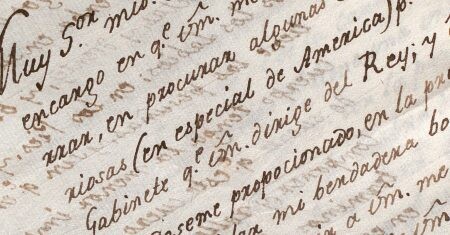 Muy S.or mio
encargo en q.e Vm. me
rrar, en procurar algunas
riosas (en especial de America) p.
Gabinete q.e Vm. dirige del Rey; y
seme propocionado, en la pr
lar mi berdadera bo
ir a Vm. me